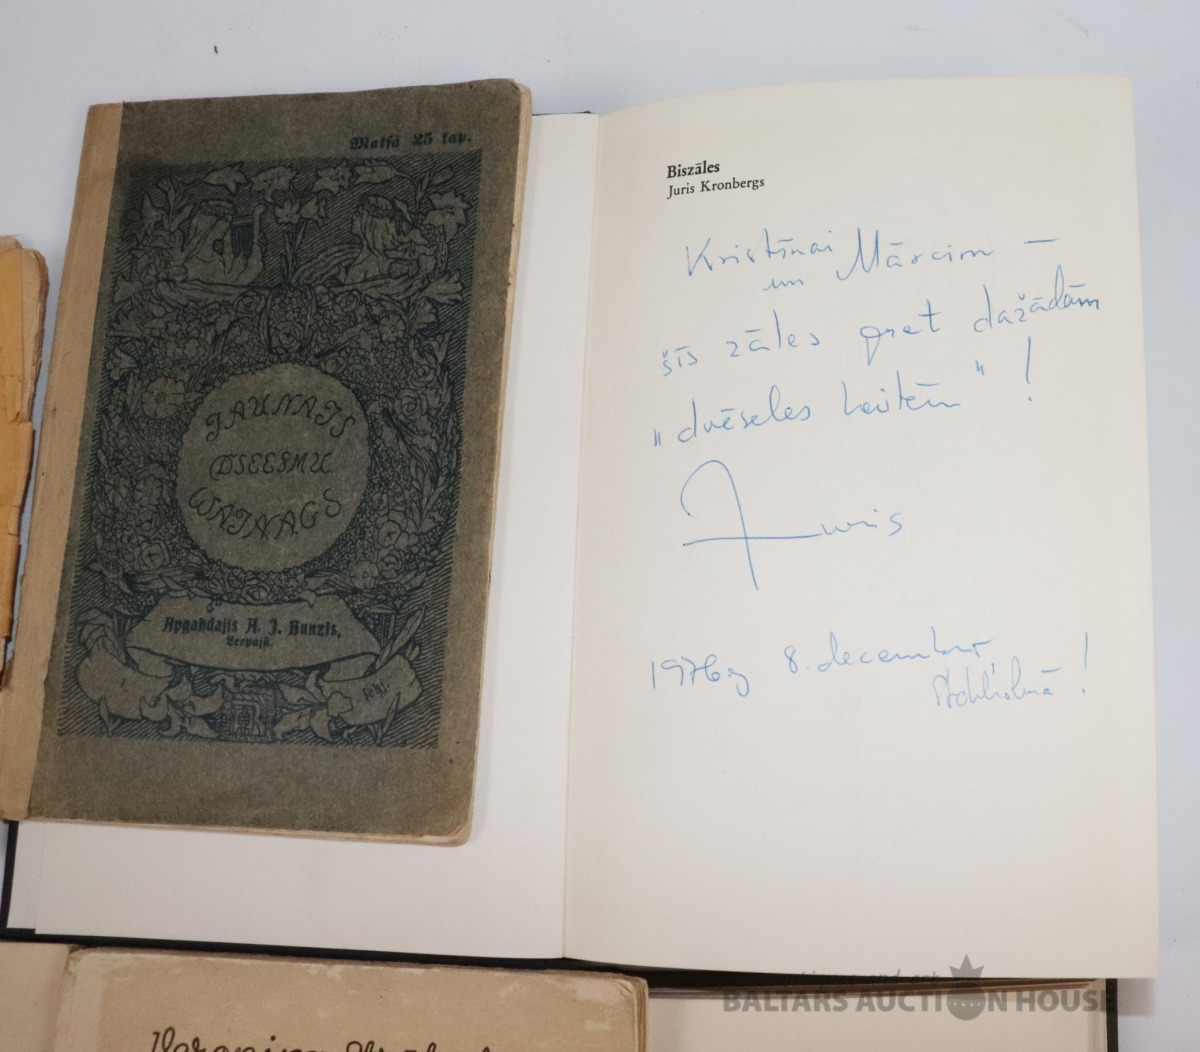 Maksā 25 kap.
JAUNAJS
DSEESMU
WAINAGS
Apgahdajis A. J. Bunzis,
Leepajā.
Biszāles
Juris Kronbergs
Kristīnai
un Mārcim —
šīs zāles pret dažādām
„dvēseles kaitēm" !
Juris
1976 g 8. decembrī,
Stokholmā !
antiques and art
BALTARS AUCTION HOUSE